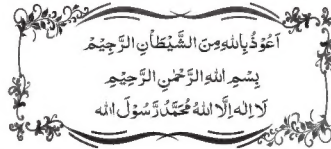 اَعُوْذُ بِاللهِ مِنَ الشَّيْطَانِ الرَّجِيْمِ
بِسْمِ اللهِ الرَّحْمٰنِ الرَّحِيْمِ
لَا اِلٰهَ اِلَّا اللهُ مُحَمَّدٌ رَّسُوْلُ اللهِ